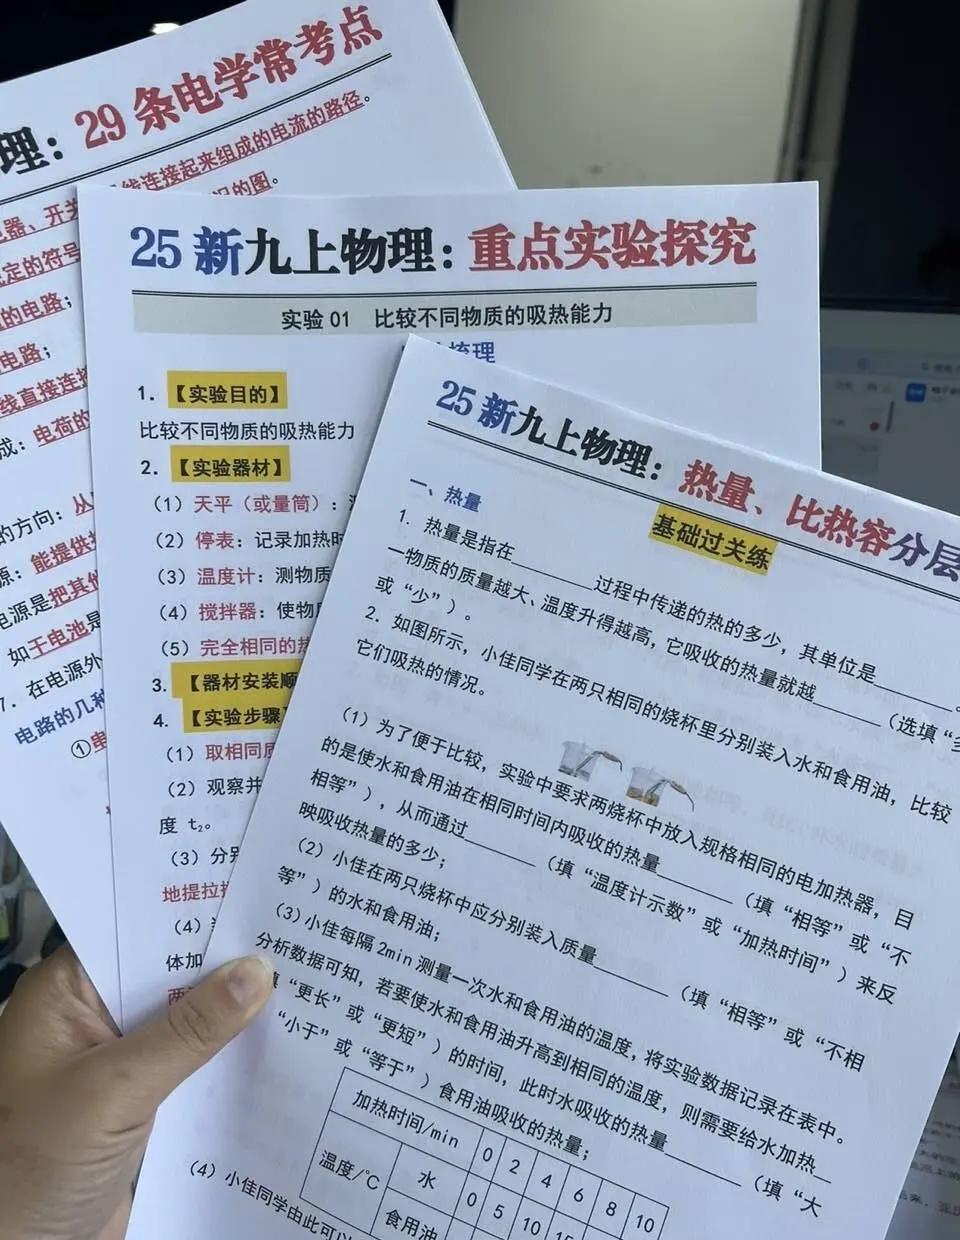 理：29条电学常考点
线连接起来组成的电流的路径。
的图。
器、开关
定的符号
的电路；
电路；
线直接连接
成：电荷的
的方向：从
源：能提供
电源是把其他
如干电池是
7．在电源外
电路的几种
①
25新九上物理：重点实验探究
实验 01 比较不同物质的吸热能力
梳理
1．【实验目的】
比较不同物质的吸热能力
2．【实验器材】
（1）天平（或量筒）：
（2）停表：记录加热时
（3）温度计：测物质
（4）搅拌器：使物质
（5）完全相同的热
3．【器材安装顺
4．【实验步骤】
（1）取相同质
（2）观察并
度 t₂。
（3）分别
地提拉
（4）
体加
两
25新九上物理：热量、比热容分层
基础过关练
一、热量
1．热量是指在______过程中传递的热的多少，其单位是______。
一物质的质量越大、温度升得越高，它吸收的热量就越______（选填“多”
或“少”）。
2．如图所示，小佳同学在两只相同的烧杯里分别装入水和食用油，比较
它们吸热的情况。
（1）为了便于比较，实验中要求两烧杯中放入规格相同的电加热器，目
的是使水和食用油在相同时间内吸收的热量______（填“相等”或“不
相等”），从而通过______（填“温度计示数”或“加热时间”）来反
映吸收热量的多少；
（2）小佳在两只烧杯中应分别装入质量______（填“相等”或“不相
等”）的水和食用油；
（3）小佳每隔 2min 测量一次水和食用油的温度，将实验数据记录在表中。
分析数据可知，若要使水和食用油升高到相同的温度，则需要给水加热__
填“更长”或“更短”）的时间，此时水吸收的热量______（填“大
“小于”或“等于”）食用油吸收的热量；
加热时间/min 0 2 4 6 8 10
温度/℃ 水 0 5 10 15
食用油
（4）小佳同学由此可以